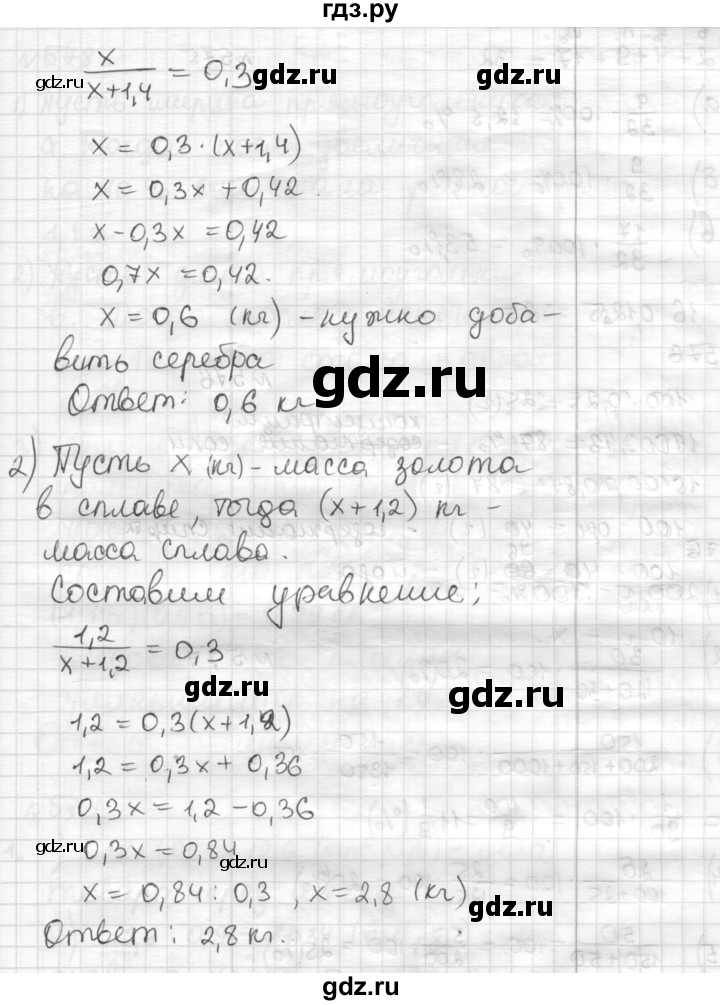 гдз.ру
x/(x+1,4) = 0,3
gdz.ru
gdz.ru
gdz.ru
x = 0,3·(x+1,4)
x = 0,3x + 0,42
x - 0,3x = 0,42
0,7x = 0,42.
x = 0,6 (кг) - нужно доба-
вить серебра
gdz.ru
Ответ: 0,6 кг
2) Пусть x (кг) - масса золота
в сплаве, тогда (x+1,2) кг -
масса сплава.
Составим уравнение:
1,2/(x+1,2) = 0,3
gdz.ru
gdz.ru
1,2 = 0,3(x+1,2)
1,2 = 0,3x + 0,36
0,3x = 1,2 - 0,36
gdz.ru
0,3x = 0,84
gdz.ru
x = 0,84 : 0,3 , x = 2,8 (кг)
gdz.ru
Ответ: 2,8 кг.
gdz.ru